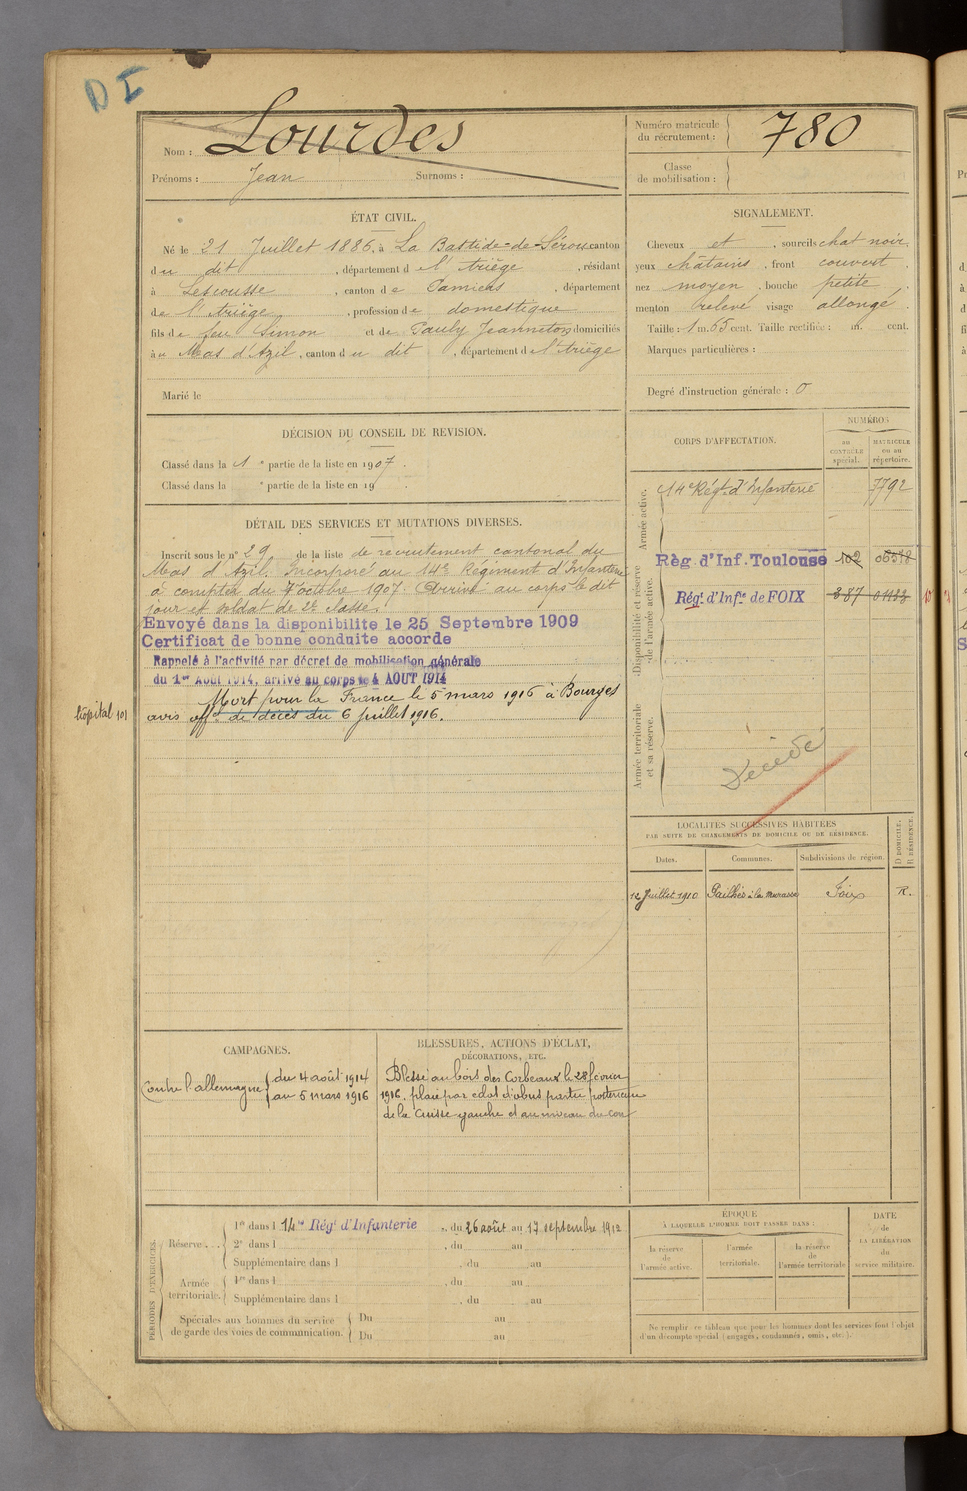 D I
Nom : Lourdes
Prénoms : Jean Surnoms :
Numéro matricule du recrutement : 780
Classe de mobilisation :
ÉTAT CIVIL.
Né le 21 Juillet 1886, à La Bastide-de-Sérou canton
du dit , département d e l'Ariège , résidant
à Lescousse , canton de Pamiers , département
de l'Ariège , profession de domestique
fils de feu Simon et de Pauly Jeanneton domiciliés
au Mas d'Azil , canton du dit , département de l'Ariège
Marié le
SIGNALEMENT.
Cheveux et , sourcils chat noir.
yeux châtains , front couvert
nez moyen , bouche petite
menton relevé visage allongé
Taille : 1 m. 65 cent. Taille rectifiée : m. cent.
Marques particulières :
Degré d'instruction générale : 0
DÉCISION DU CONSEIL DE REVISION.
Classé dans la 1 e partie de la liste en 1907 .
Classé dans la e partie de la liste en 19 .
DÉTAIL DES SERVICES ET MUTATIONS DIVERSES.
Inscrit sous le n° 29 de la liste de recrutement cantonal du
Mas d'Azil. Incorporé au 14e Régiment d'Infanterie
à compter du 7 octobre 1907. Arrivé au corps le dit
jour et soldat de 2e classe.
Envoyé dans la disponibilite le 25 Septembre 1909
Certificat de bonne conduite accorde
Rappelé à l'activité par décret de mobilisation générale
du 1er Aout 1914, arrivé au corps le 4 AOUT 1914
Mort pour la France le 5 mars 1916 à Bourges
hôpital 101
avis offel de décès du 6 juillet 1916.
CORPS D'AFFECTATION.
NUMÉROS
au CONTRÔLE spécial.
MATRICULE ou au répertoire.
Armée active.
14e Régt d'Infanterie 7792
Disponibilité et réserve de l'armée active.
Règ. d'Inf. Toulouse 102
Régt d'Infie de FOIX 387
Armée territoriale et sa réserve.
Décédé
LOCALITÉS SUCCESSIVES HABITÉES
PAR SUITE DE CHANGEMENTS DE DOMICILE OU DE RÉSIDENCE.
Dates. Communes. Subdivisions de région. D DOMICILE. R RÉSIDENCE.
12 Juillet 1910 Pailhès Foix R.
CAMPAGNES.
Contre l'allemagne du 4 août 1914
au 5 mars 1916
BLESSURES, ACTIONS D'ÉCLAT,
DÉCORATIONS, ETC.
Blessé au bois des Corbeaux le 28 février
1916, plaie par eclat d'obus partie postérieure
de la Cuisse gauche et au niveau du cou
PÉRIODES D'EXERCICES.
Réserve....
1re dans l 14me Régt d'Infanterie , du 26 août au 17 septembre 1912
2e dans l , du au
Supplémentaire dans l , du au
Armée territoriale.
1re dans l , du au
Supplémentaire dans l , du au
Spéciales aux hommes du service Du au
de garde des voies de communication. Du au
ÉPOQUE
À LAQUELLE L'HOMME DOIT PASSER DANS :
la réserve de l'armée active.
l'armée territoriale.
la réserve de l'armée territoriale
DATE de LA LIBÉRATION du service militaire.
Ne remplir ce tableau que pour les hommes dont les services font l'objet
d'un décompte spécial (engagés, condamnés, omis, etc.).